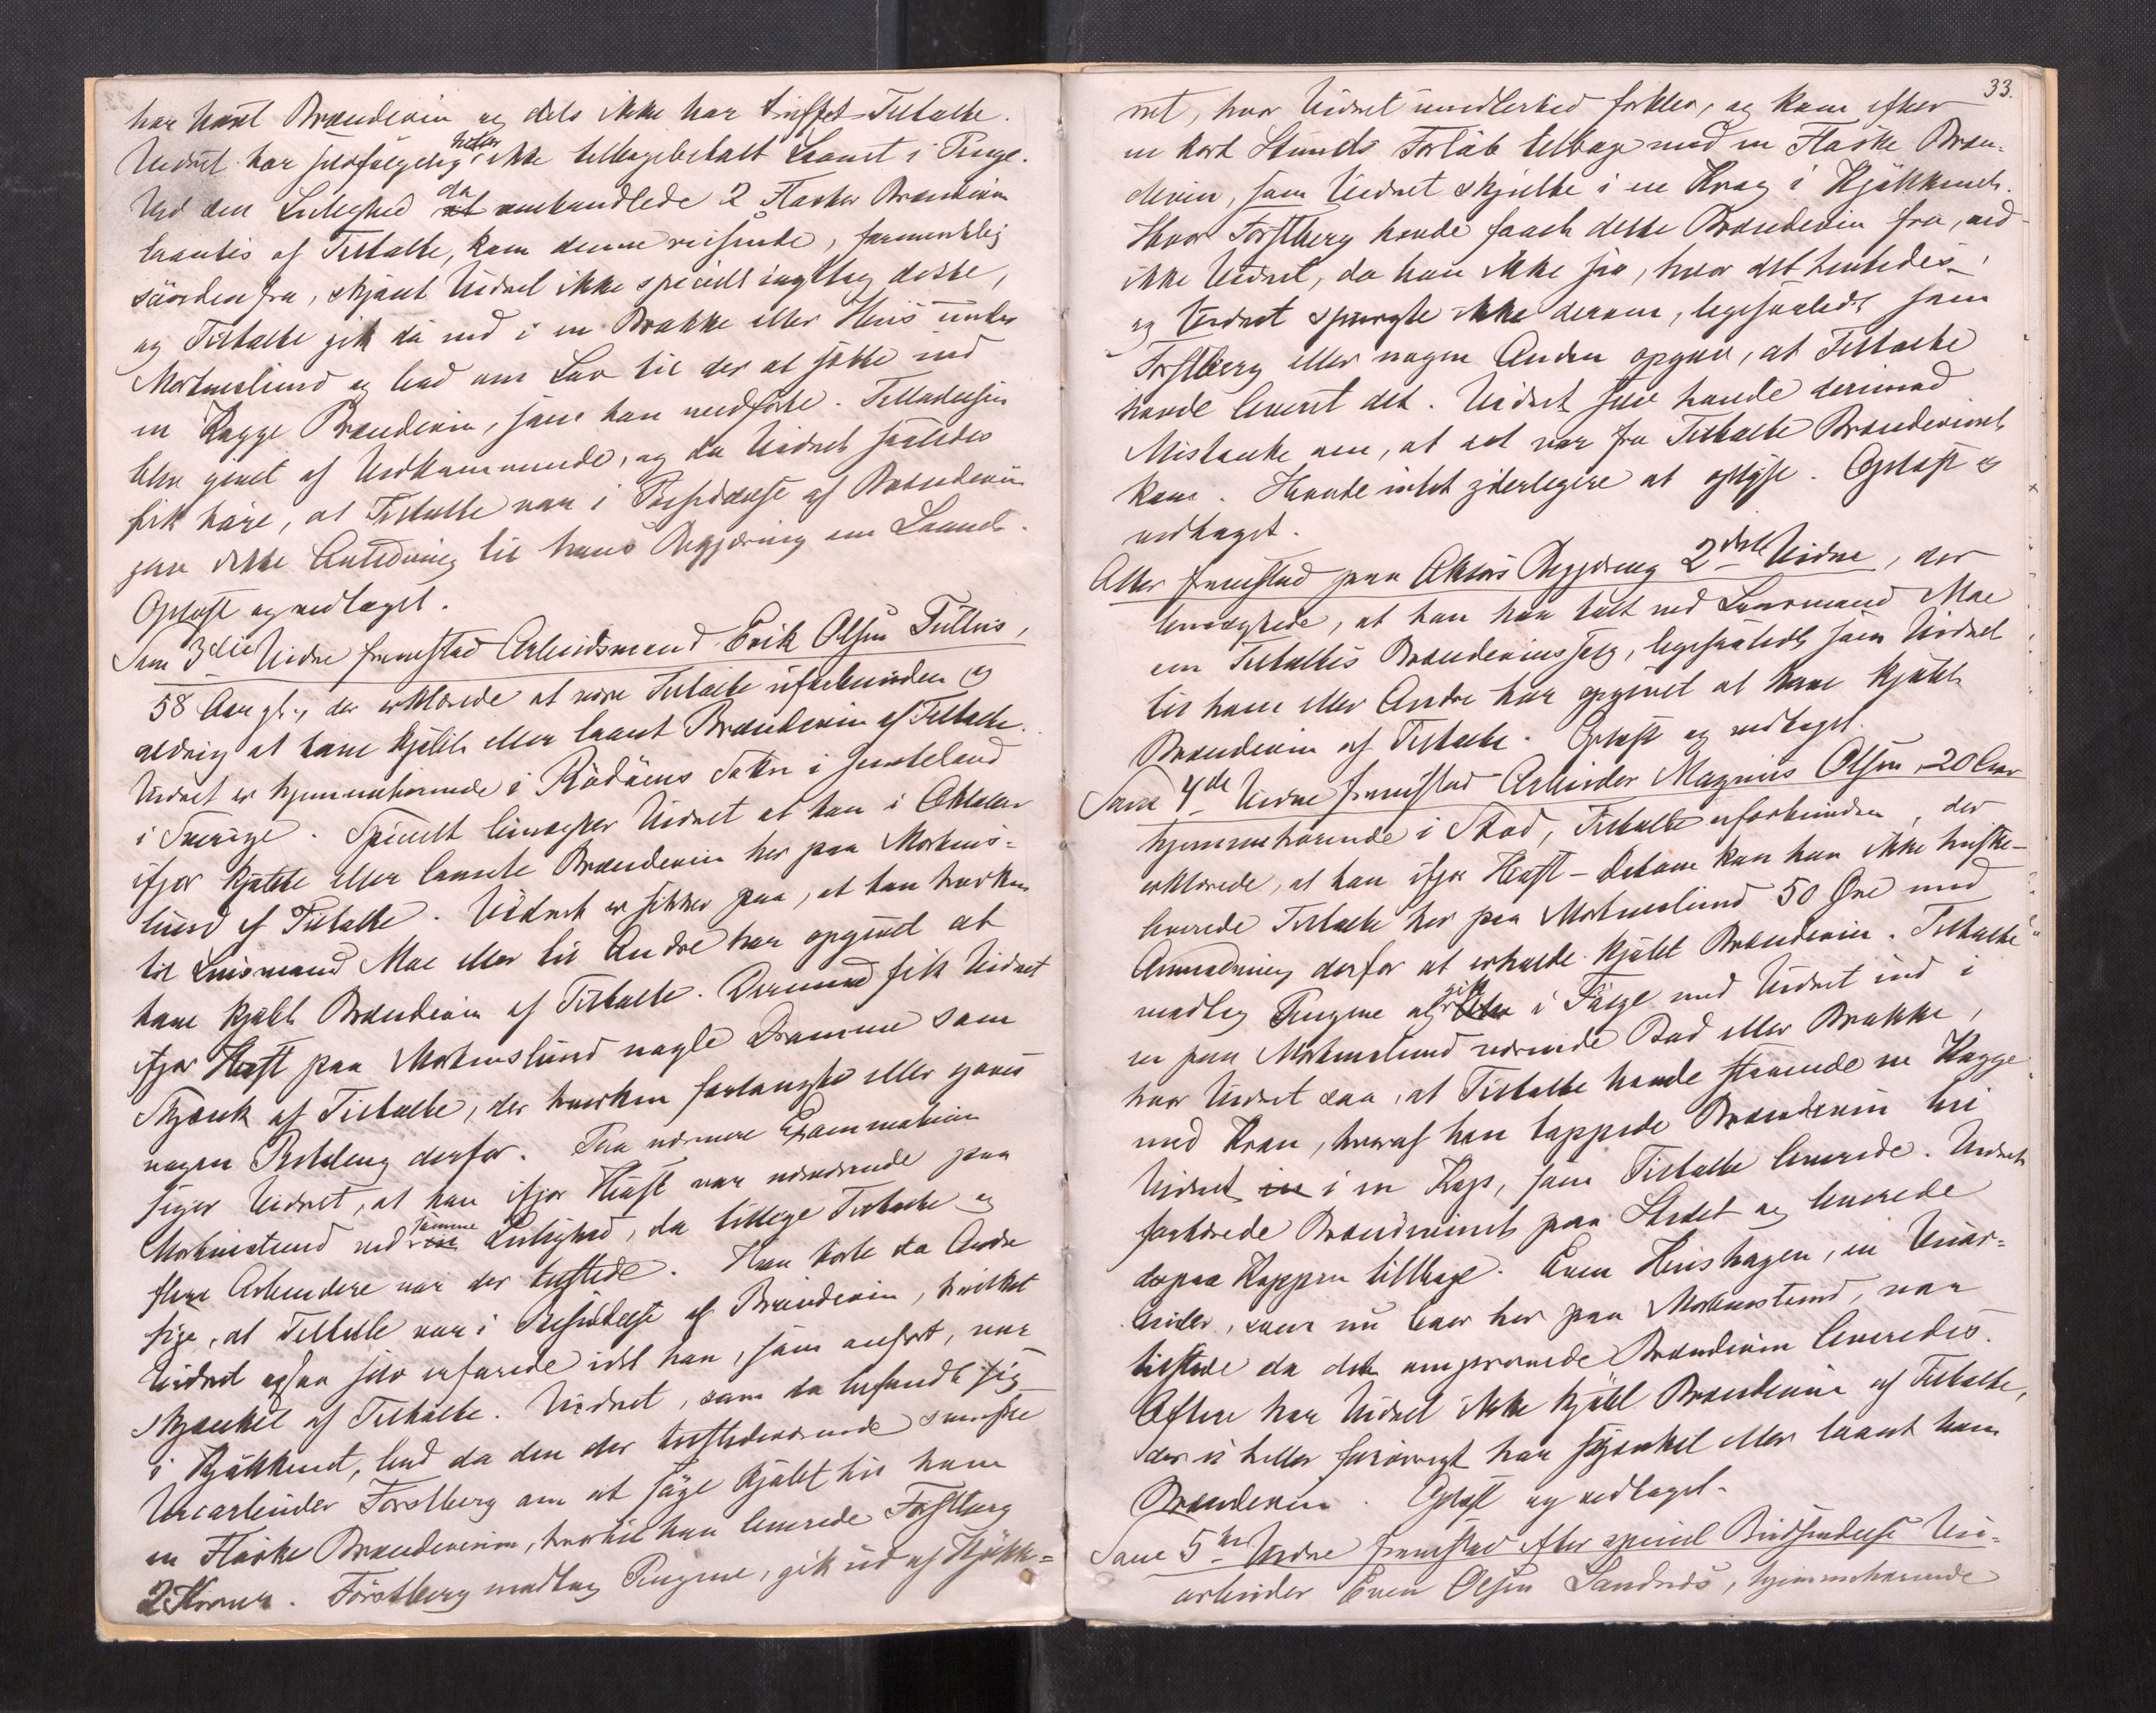 har havt Brændevin og dels ikke har truffet Tiltalte.
Vidnet har selvfølgelig heller ikke tilbagebetalt Laanet i Penge.
Ved den Leilighed da omhandlede 2 Flasker Brændevin
laantes af Tiltalte, kom denne reisende, formentlig
søndenfra, skjønt Vidnet ikke specielt iagttog dette,
og Tiltalte gik da ind i en Brakke eller Hus under
Mortenslund og bad om Lov til der at sætte ind
en Kagge Brændevin, som han medførte. Tilladelsen
blev givet af Vedkommende, og da Vidnet saaledes
fik høre, at Tiltalte var i Besiddelse af Brændevin
gav dette Anledning til hans Begjæring om Laanet.
Oplæst og vedtaget.
Som 3die Vidne fremstod Arbeidsmand Erik Olsen
58 Aar gl., der erklærede at være Tiltalte uforbunden og
aldrig at have kjøbt eller laant Brændevin af Tiltalte.
Vidnet er hjemmehørende i Rödöens Sokn i Jemteland
i Sverige. Specielt benægter Vidnet at han i Oktober
ifjor kjøbte eller laante Brændevin her paa Mortens-
lund af Tiltalte. Vidnet er sikker paa, at han hverken
til Lensmand Moe eller til Andre har opgivet at
have kjøbt Brændevin af Tiltalte. Derimod fik Vidnet
ifjor Høst paa Mortenslund nogle Dramme som
Skjænk af Tiltalte, der hverken forlangte eller gaves
nogen Betaling derfor. Paa nærmere Examination
siger Vidnet, at han ifjor Høst var nærværende paa
Mortenslund ved samme Leilighed, da tillige Tiltalte og
flere Arbeidere var der tilstede. Han hørte da Andre
sige, at Tiltalte var i Besiddelse af Brændevin, hvilket
Vidnet ogsaa selv erfarede idet han, som anført, var
skjænket af Tiltalte. Vidnet, som da befandt sig
i Kjøkkenet, bad da den der tilstedeværende svenske
Veiarbeider Forstberg om at søge kjøbt til ham
en Flaske Brændevin, hvortil han leverede Forstberg
2 Kroner. Forstberg modtog Pengene, gik ud af Kjøkk-
33.
net, hvor Vidnet imidlertid forblev, og kom efter
en kort Stunds Forløb tilbage med en Flaske Bræn-
devin, som Vidnet skjulte i en Krog i Kjøkkenet.
Hvor Forstberg havde faaet dette Brændevin fra, ved
ikke Vidnet, da han ikke saa, hvor det hentedes,
og Vidnet spurgte ikke derom, ligesaalidt som
Forstberg eller nogen Anden opgav, at Tiltalte
havde leveret det. Vidnet selv havde derimod
Mistanke om, at det var fra Tiltalte Brændevinet
kom. Havde intet yderligere at oplyse. Oplæst og
vedtaget.
Atter fremstod paa Aktors Begjæring 2det Vidne, der
benægtede, at han har talt med Lensmand Moe
om Tiltaltes Brændevinssalg, ligesaalidt som Vidnet
til ham eller Andre har opgivet at have kjøbt
Brændevin af Tiltalte. Oplæst og vedtaget.
Som 4de Vidne fremstod Arbeider Magnus Olsen, 20 Aar
hjemmehørende i Stod, Tiltalte uforbunden, der
erklærede, at han ifjor Høst – Datoen kan han ikke huske –
leverede Tiltalte her paa Mortenslund 50 Øre med
Anmodning derfor at erholde kjøbt Brændevin. Tiltalte
modtog Pengene og gik i Følge med Vidnet ind i
en paa Mortenslund værende Bod eller Brakke,
hvor Vidnet saa, at Tiltalte havde staaende en Kagge
med Kran, hvoraf han tappede Brændevin til
Vidnet i en Kop, som Tiltalte leverede. Vidnet
fortærede Brændevinet paa Stedet og leverede
derpaa Koppen tilbage. Even Henishagen, en Veiar-
beider, som nu bor her paa Mortenslund, var
tilstede da det omprovede Brændevin leveredes.
Oftere har Vidnet ikke kjøbt Brændevin af Tiltalte,
der ei heller forøvrigt har skjænket eller laant ham
Brændevin. Oplæst og vedtaget.
Som 5te Vidne fremstod efter speciel Budsendelse Vei-
arbeider Even Olsen, hjemmehørende